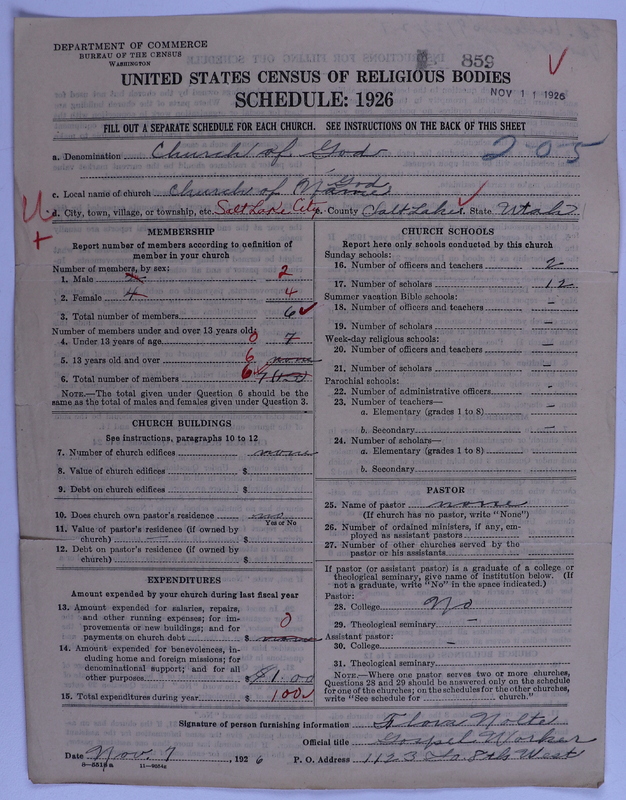 DEPARTMENT OF COMMERCE
BUREAU OF THE CENSUS
WASHINGTON
859
UNITED STATES CENSUS OF RELIGIOUS BODIES
SCHEDULE: 1926
NOV 11 1926
FILL OUT A SEPARATE SCHEDULE FOR EACH CHURCH. SEE INSTRUCTIONS ON THE BACK OF THIS SHEET
a. Denomination Church of God 205
c. Local name of church Church of God
d. City, town, village, or township, etc. Salt Lake City County Salt Lake State Utah
MEMBERSHIP
Report number of members according to definition of
member in your church
Number of members, by sex:
1. Male 2
2. Female 4 4
3. Total number of members 6
Number of members under and over 13 years old:
4. Under 13 years of age 0 7
5. 13 years old and over 6 none
6. Total number of members 6 7
NOTE.—The total given under Question 6 should be
same as the total of males and females given under Question 3.
CHURCH BUILDINGS
See instructions, paragraphs 10 to 12
7. Number of church edifices none
8. Value of church edifices $
9. Debt on church edifices $
10. Does church own pastor's residence no
Yes or No
11. Value of pastor's residence (if owned by
church) — $
12. Debt on pastor's residence (if owned by
church) $
EXPENDITURES
Amount expended by your church during last fiscal year
13. Amount expended for salaries, repairs,
and other running expenses; for im-
provements or new buildings; and for
payments on church debt $ none 0
14. Amount expended for benevolences, in-
cluding home and foreign missions; for
denominational support; and for all
other purposes $ 1.00
15. Total expenditures during year $ 100
CHURCH SCHOOLS
Report here only schools conducted by this church
Sunday schools:
16. Number of officers and teachers 2
17. Number of scholars 12
Summer vacation Bible schools:
18. Number of officers and teachers —
19. Number of scholars —
Week-day religious schools:
20. Number of officers and teachers —
21. Number of scholars —
Parochial schools:
22. Number of administrative officers -
23. Number of teachers—
a. Elementary (grades 1 to 8) —
b. Secondary —
24. Number of scholars—
a. Elementary (grades 1 to 8)
b. Secondary
PASTOR
25. Name of pastor none
(If church has no pastor, write "None")
26. Number of ordained ministers, if any, em-
ployed as assistant pastors
27. Number of other churches served by the
pastor or his assistants
If pastor (or assistant pastor) is a graduate of a college or
theological seminary, give name of institution below. (If
not a graduate, write "No" in the space indicated.)
Pastor:
28. College No
29. Theological seminary -
Assistant pastor:
30. College -
31. Theological seminary
NOTE.—Where one pastor serves two or more churches,
Questions 28 and 29 should be answered only on the schedule
for one of the churches; on the schedules for the other churches,
write "See schedule for church."
Signature of person furnishing information Flora Nolte
Official title Gospel Worker
Date Nov. 7, 1926 P. O. Address 1123 So. 8th West
11—9054a